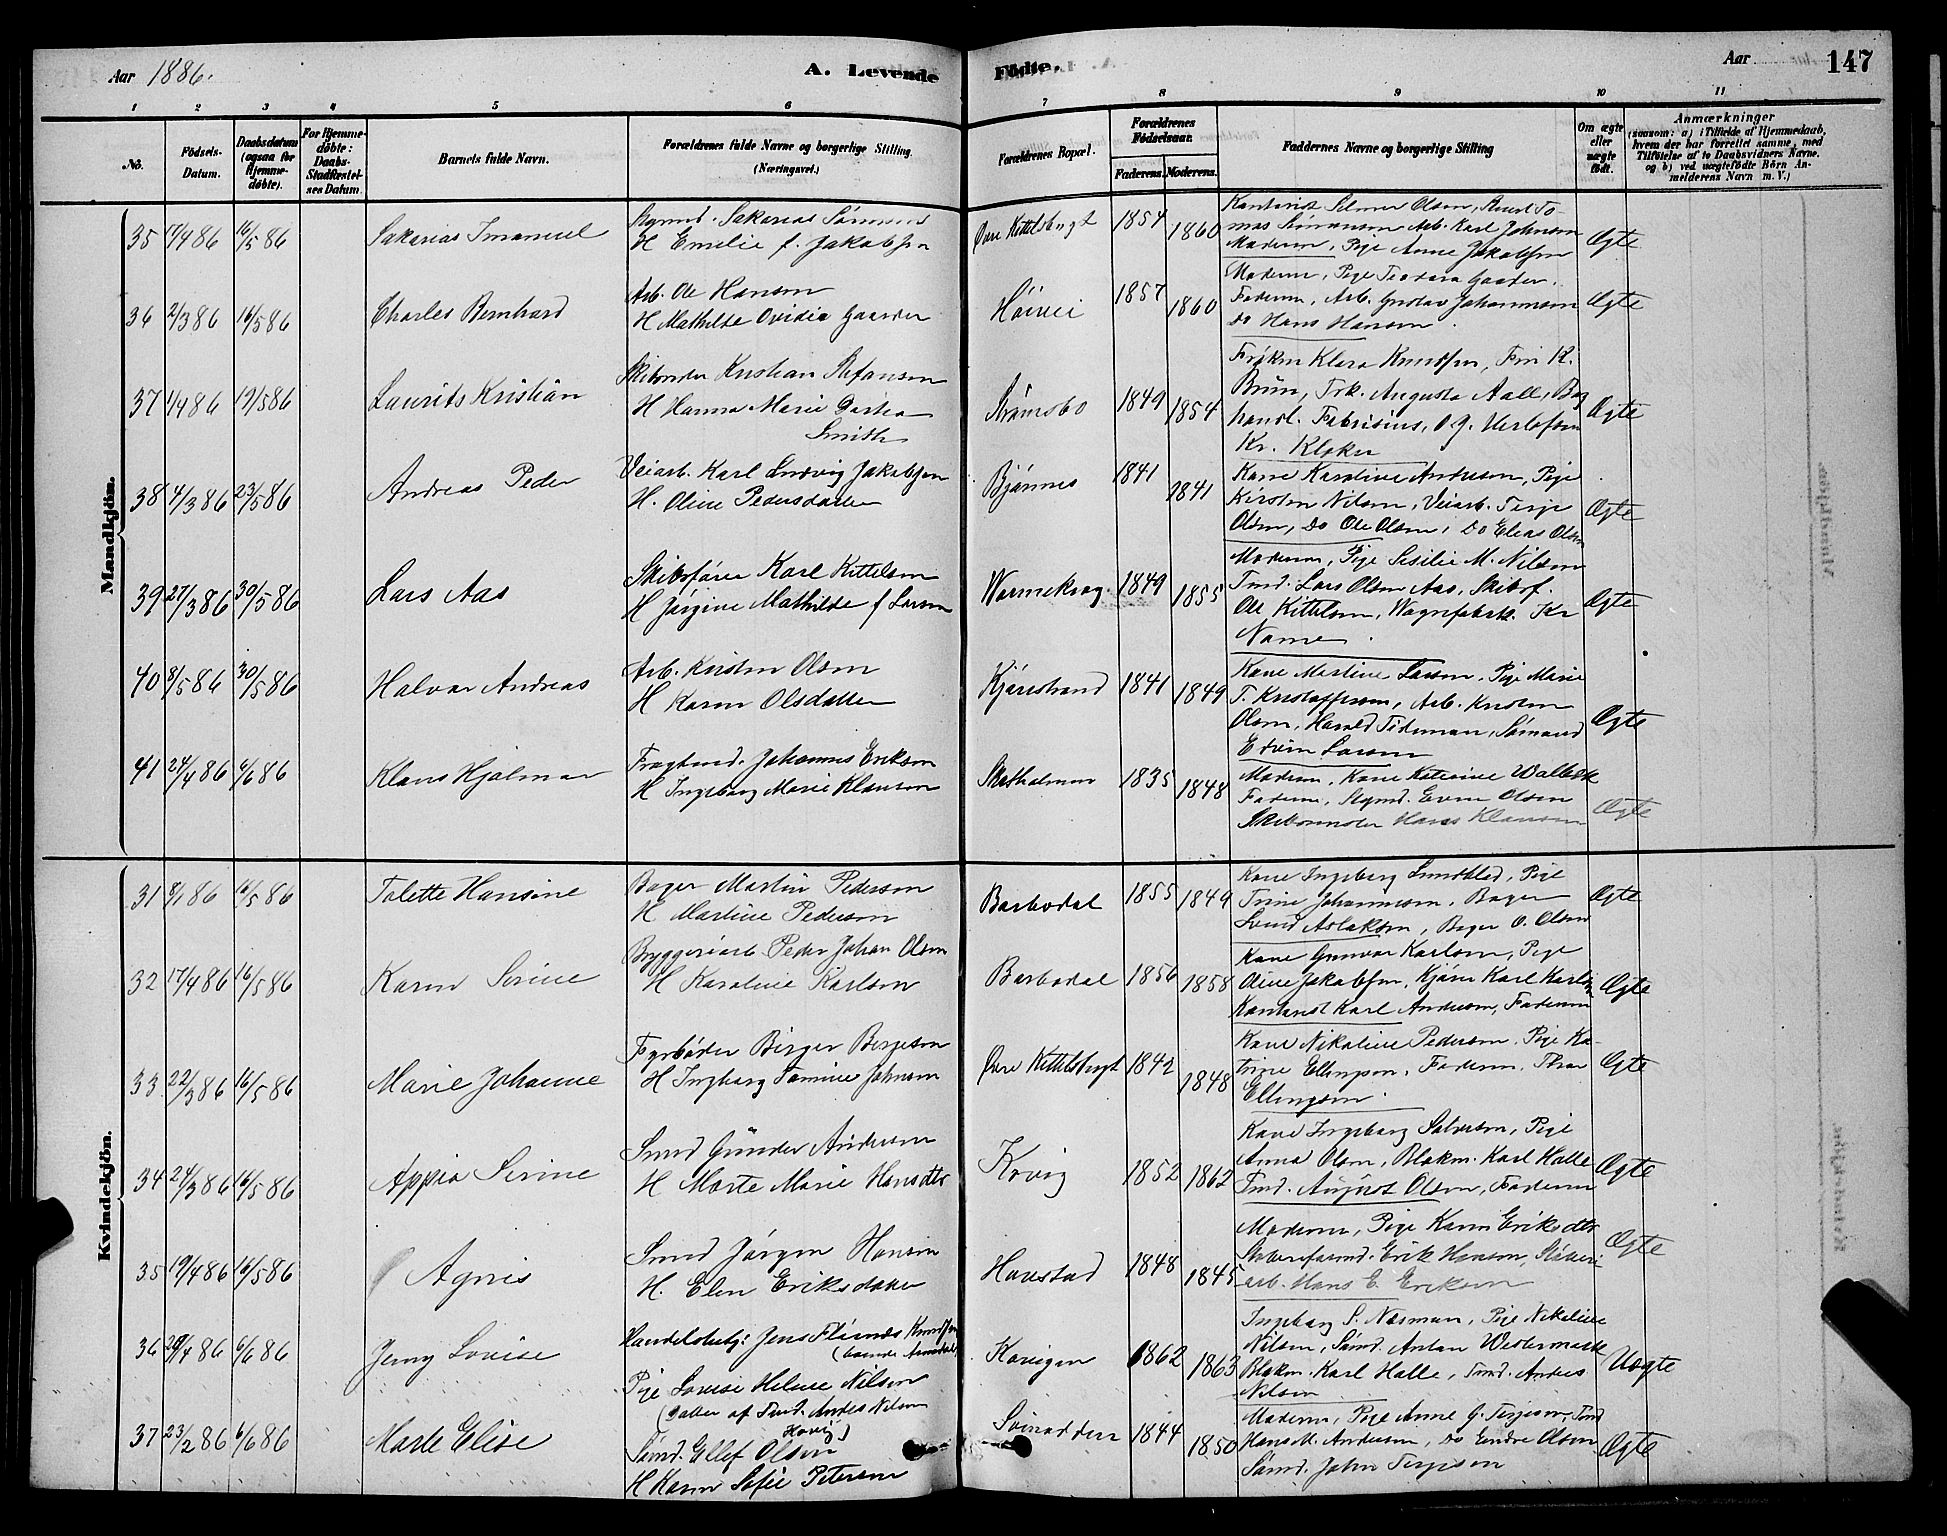 Aar 1886.
A. Levende Fødte.
Aar
147
1 2 3 4 5 6 7 8 9 10 11
No.
Fødsels-Datum.
Daabsdatum (ogsaa for Hjemmedøbte).
For Hjemmedøbte: Daabs-Stadfæstelses Datum.
Barnets fulde Navn.
Forældrenes fulde Navne og borgerlige Stilling. (Næringsvei.)
Forældrenes Bopæl.
Forældrenes Fødselsaar.
Faderens. Moderens.
Faddernes Navne og borgerlige Stilling
Om ægte eller uægte født.
Anmærkninger
(saasom: a) i Tilfælde af Hjemmedaab, hvem der har forrettet samme, med Tilføielse af to Daabsvidners Navne, og b) ved uægtefødte Børn Anmelderens Navn m. V.)
Mandkjøn.
35 17/4 86 16/5 86 Sakarias Imanuel
Sakarias
H Emelie f. Jakobsen
Øvre Kittelsbugt 1854 1860
Kontorist Selmer Olsen,
Arb. Karl Johnsen
Moderen, Pige Anne Jakobsen
Ægte
36 2/3 86 16/5 86 Charles Bernhard
Arb. Ole Hansen
H Mathilde Ovidia Gaarder
Høivei 1857 1860
Moderen, Pige Teodora Gaarder.
Faderen, Arb. Gustav Johannesen
Do Hans Hansen.
Ægte
37 1/4 86 19/5 86 Laurits Kristian
Kristian Stefansen
H Hanna Marie
Smith
Strømsbo 1849 1854
Frøken Klara Knudsen, Fru K.
Bruun, Frk. Augusta Aall,
Fabrisius, O. J.
Kr. Kløker
Ægte
38 4/3 86 23/5 86 Andreas Peder
Veiarb. Karl Ludvig Jakobsen
H. Oline Pedersdatter
Bjønnes 1841 1841
Kone Karoline Andersen, Pige
Kirsten Nilsen, Veiarb. Terje
Olsen, Do Ole Olsen, Do Elias Olsen
Ægte
39 27/3 86 30/5 86 Lars Aas
Skibsfører Karl Kittelsen
H Jørgine Mathilde f Larsen
1849 1855
Moderen, Pige Sesilie M. Nilsen
Tmd. Lars Olsen Aas, Skibsf.
Ole Kittelsen, Vognfabrik. Kr
Ægte
40 8/5 86 30/5 86 Halvor Andreas
Arb. Kristen Olsen
H Karen Olsdatter
1841 1849
Kone Martine Larsen, Pige Marie
T. Kristoffersen, Arb. Kristen
Olsen, Harald Tideman, Sømand
Edvin Larsen
Ægte
41 24/4 86 6/6 86 Klaus Hjalmar
Johannes Eriksen
H Ingeborg Marie Klausen
1835 1848
Moderen, Kone Katrine
Faderen, Even Olsen
Hans Klausen
Ægte
Kvindekjøn.
31 8/1 86 16/5 86 Talette Hansine
Bager Martin Pedersen
H Martine Pedersen
Barbodal 1855 1849
Kone Ingeborg Lundblad, Pige
Trine Johannesen, Bager
Svend Aslaksen, Bager O. Olsen
Ægte
32 17/4 86 16/5 86 Karen Serine
Bryggeriarb Peder Johan Olsen
H Karoline Karlsen
Barbodal 1856 1858
Kone Gunvor Karlsen, Pige
Oline Jakobsen, Karl Karlsen
Kontorist Karl Andersen, Faderen
Ægte
33 22/3 86 16/5 86 Marie Johanne
Fyrbøder Birger Børgesen
H Ingeborg Tomine Johnsen
Øvre Kittelsbugt 1842 1848
Kone Nikoline Pedersen. Pige Ka-
trine Ellingsen. Faderen. Thor
Ellingsen.
Ægte
34 24/3 86 16/5 86 Appia Serine
Smed Gunder Andersen
H Marte Marie Hansdtr
Kovig 1852 1862
Kone Ingeborg Salvesen, Pige
Anna Olsen, Blokm. Karl Halle
Tmd. August Olsen, Faderen
Ægte
35 19/4 86 16/5 86 Agnes
Smed Jørgen Hansen
H. Elen Eriksdatter
Havestad 1848 1845
Moderen, Pige Karen Eriksdtr
Erik Hansen, Støberi
arb. Hans E. Eriksen
Ægte
36 29/4 86 6/6 86 Jenny Lovise
Handelsbetj: Jens Knudsen
(boende Arendal)
Pige Lovise Helene Nilsen
(datter af Tmd. Anders Nilsen
Kovig)
Kovigen 1862 1863
Ingeborg S. Næsman, Pige Nikoline
Nilsen, Sømd. Anton Westermark
Blokm. Karl Halle, Tmd. Anders
Nilsen
Uægte
37 23/2 86 6/6 86 Marte Elise
Sømd. Ellef Olsen
H Karen Sofie Petersen
Svinodden 1844 1850
Moderen, Pige Anne G. Terjesen, Tmd
Hans M. Andersen, Do Endre Olsen
Sømd. John Terjesen
Ægte